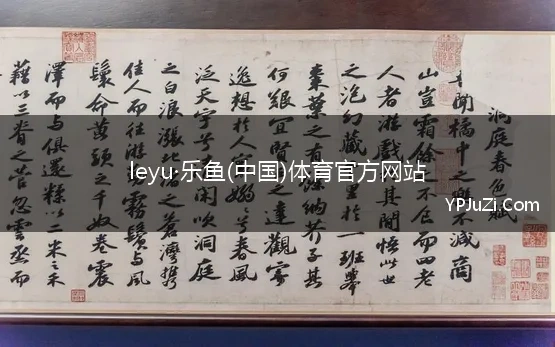 洞庭春色賦
吾聞橘中之樂不減商
山豈霜餘之不食而四老
人者游戲於其間悟此世
之泡幻藏千里於一班舉
棗葉之有餘納芥子其
何艱宜賢王之達觀寄
逸想於人寰嫋嫋兮春風
泛天宇兮清閑吹洞庭
之白浪漲北渚之蒼灣攜
佳人而往游勒霧鬢與風
鬟命黃頭之千奴卷震
澤而與俱還糅以二米之禾
藉以三脊之菅忽雲烝而
leyu·乐鱼(中国)体育官方网站
YPJuZi.Com